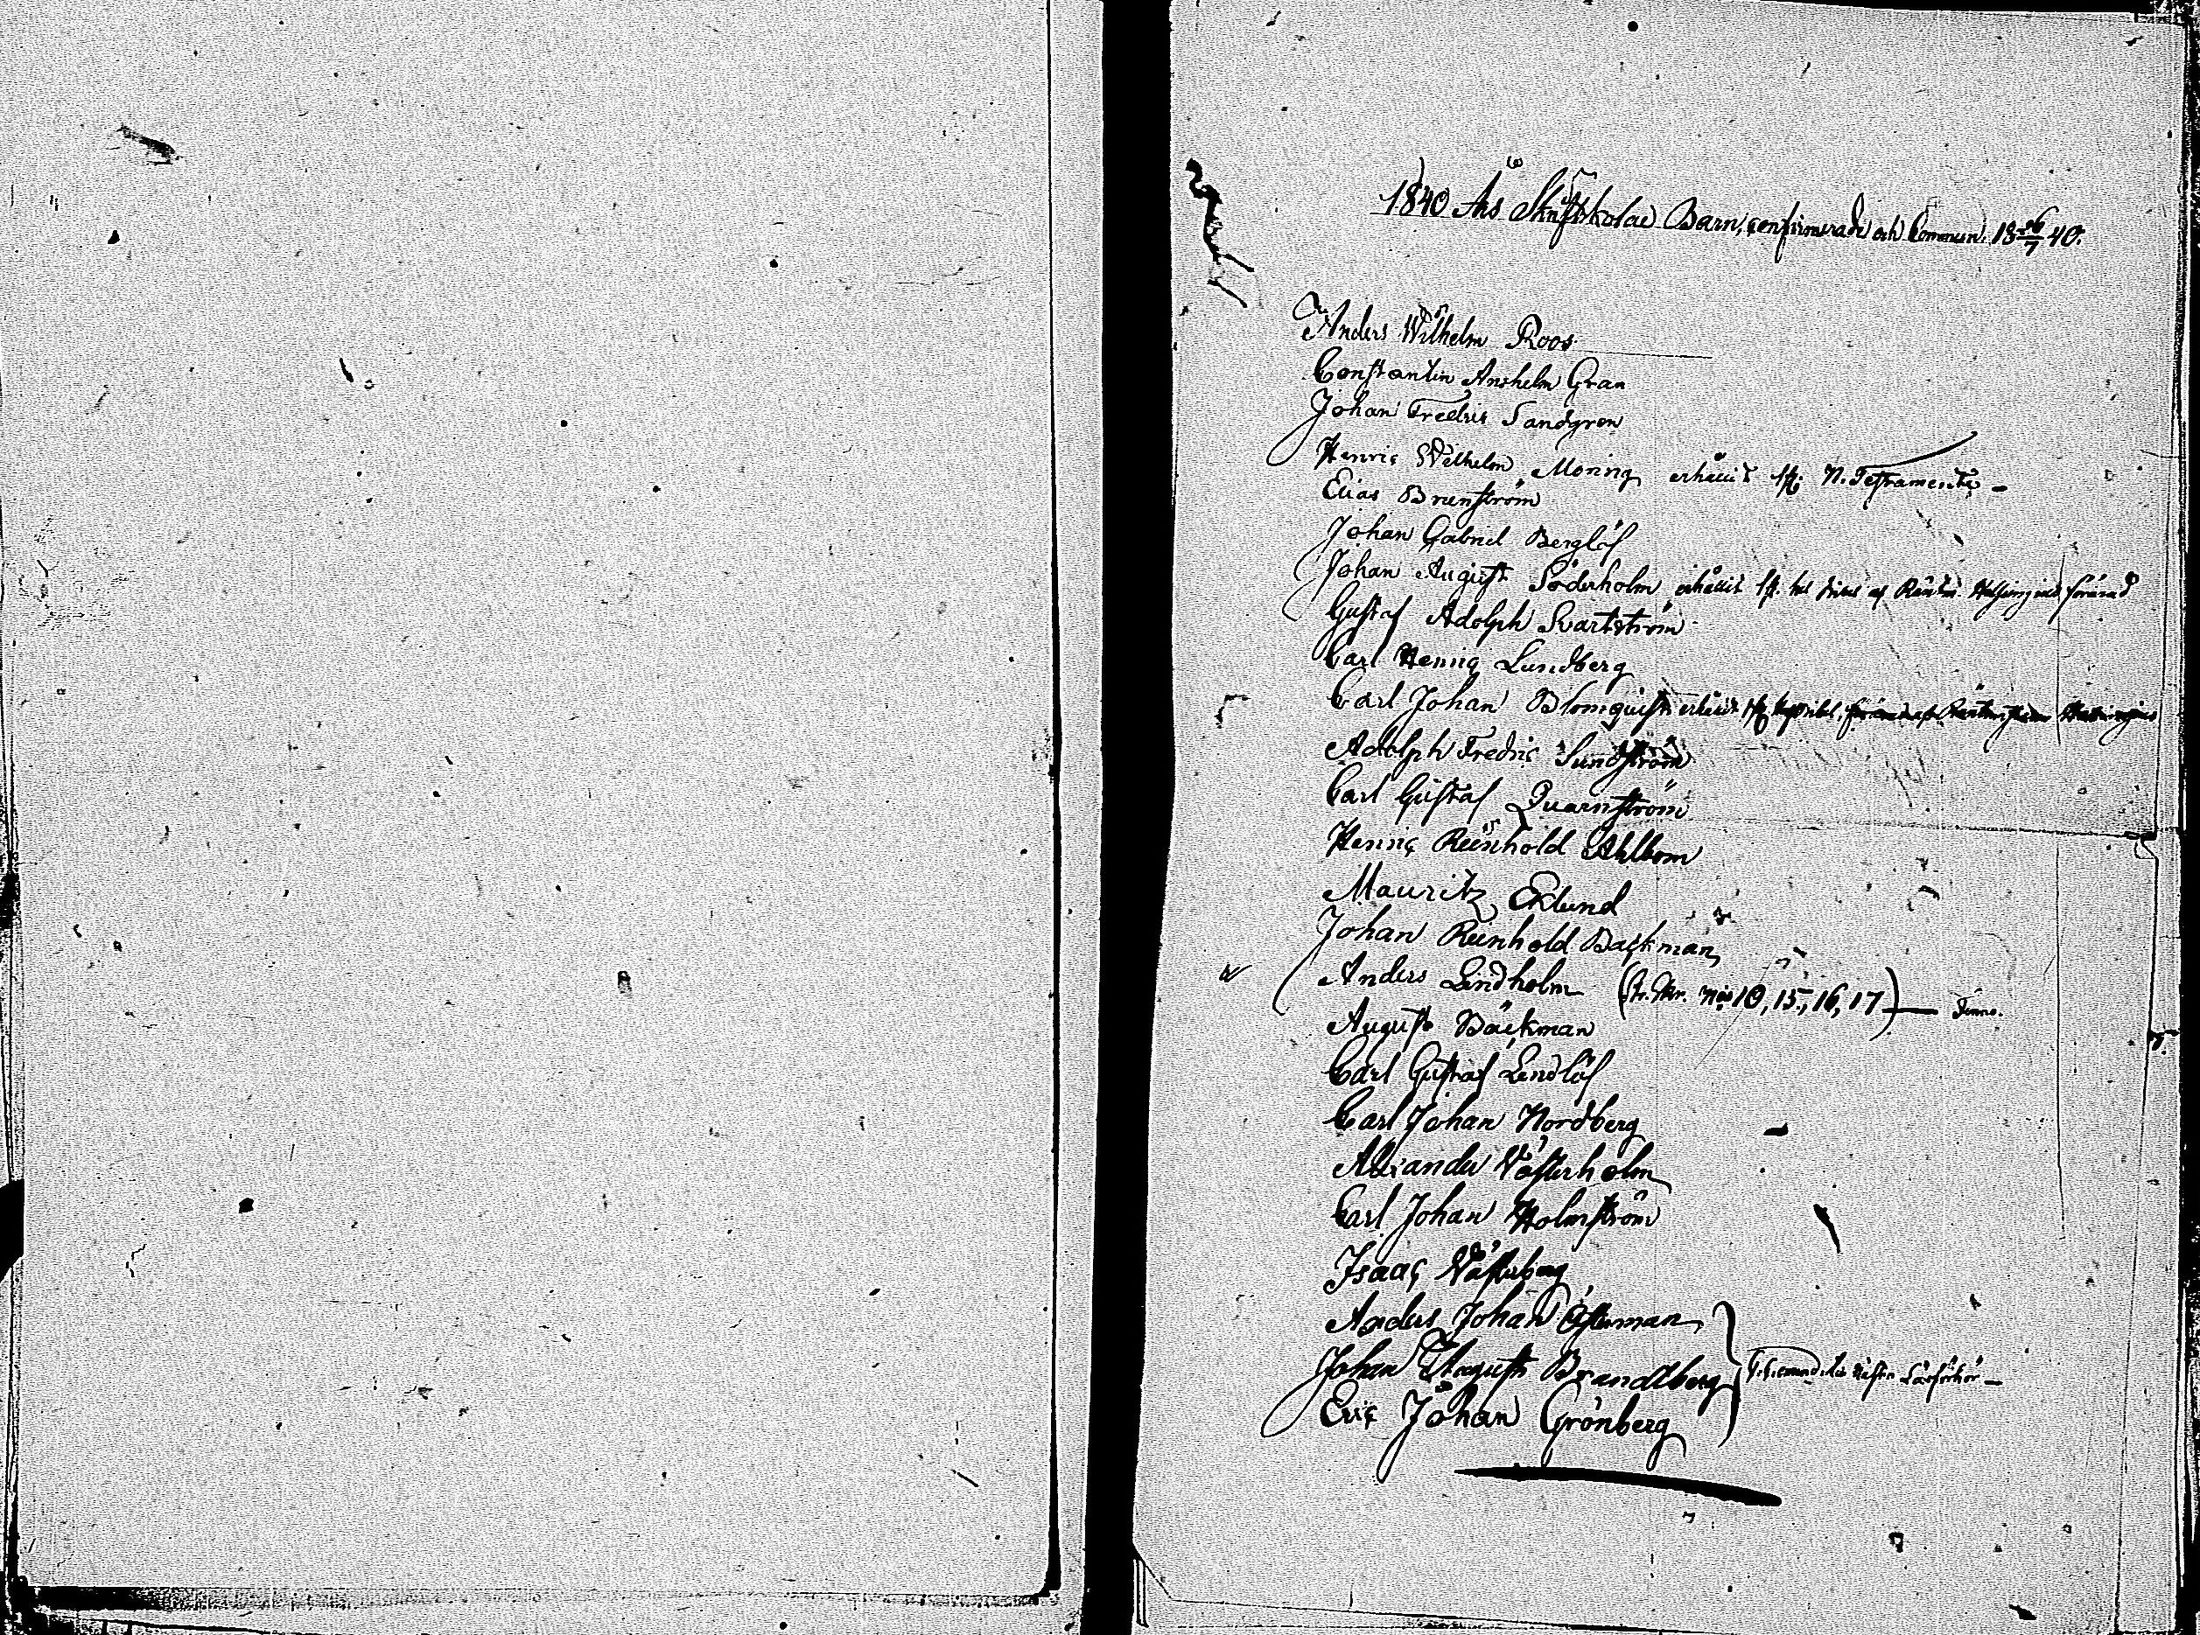 1840 Års Skriftskolae Barn, confirmerade och Commun. 18 26/7 40.
Anders Wilhelm Roos
Constantin Anshelm Gran
Johan Fredric Sandgren
Henric Wilhelm Moring erhållit N. Testamente
Elias Brunström
Johan Gabriel Berglöf
Johan August Söderholm erhållit af
Gustaf Adolph Svartström
Carl Henric Lundberg
Carl Johan Blomquist erhållit
Adolph Fredric Sundström
Carl Gustaf Quarnström
Henric Reinhold Ahlbom
Mauritz Eklund
Johan Reinhold Backman
Anders Lindholm 10, 15, 16, 17)
August Bäckman
Carl Gustaf Lindlöf
Carl Johan Nordberg
Alexander Västerholm
Carl Johan Holmström
Isaac Västerberg
Anders Johan Österman
Johan August Brandtberg
Eric Johan Grönberg